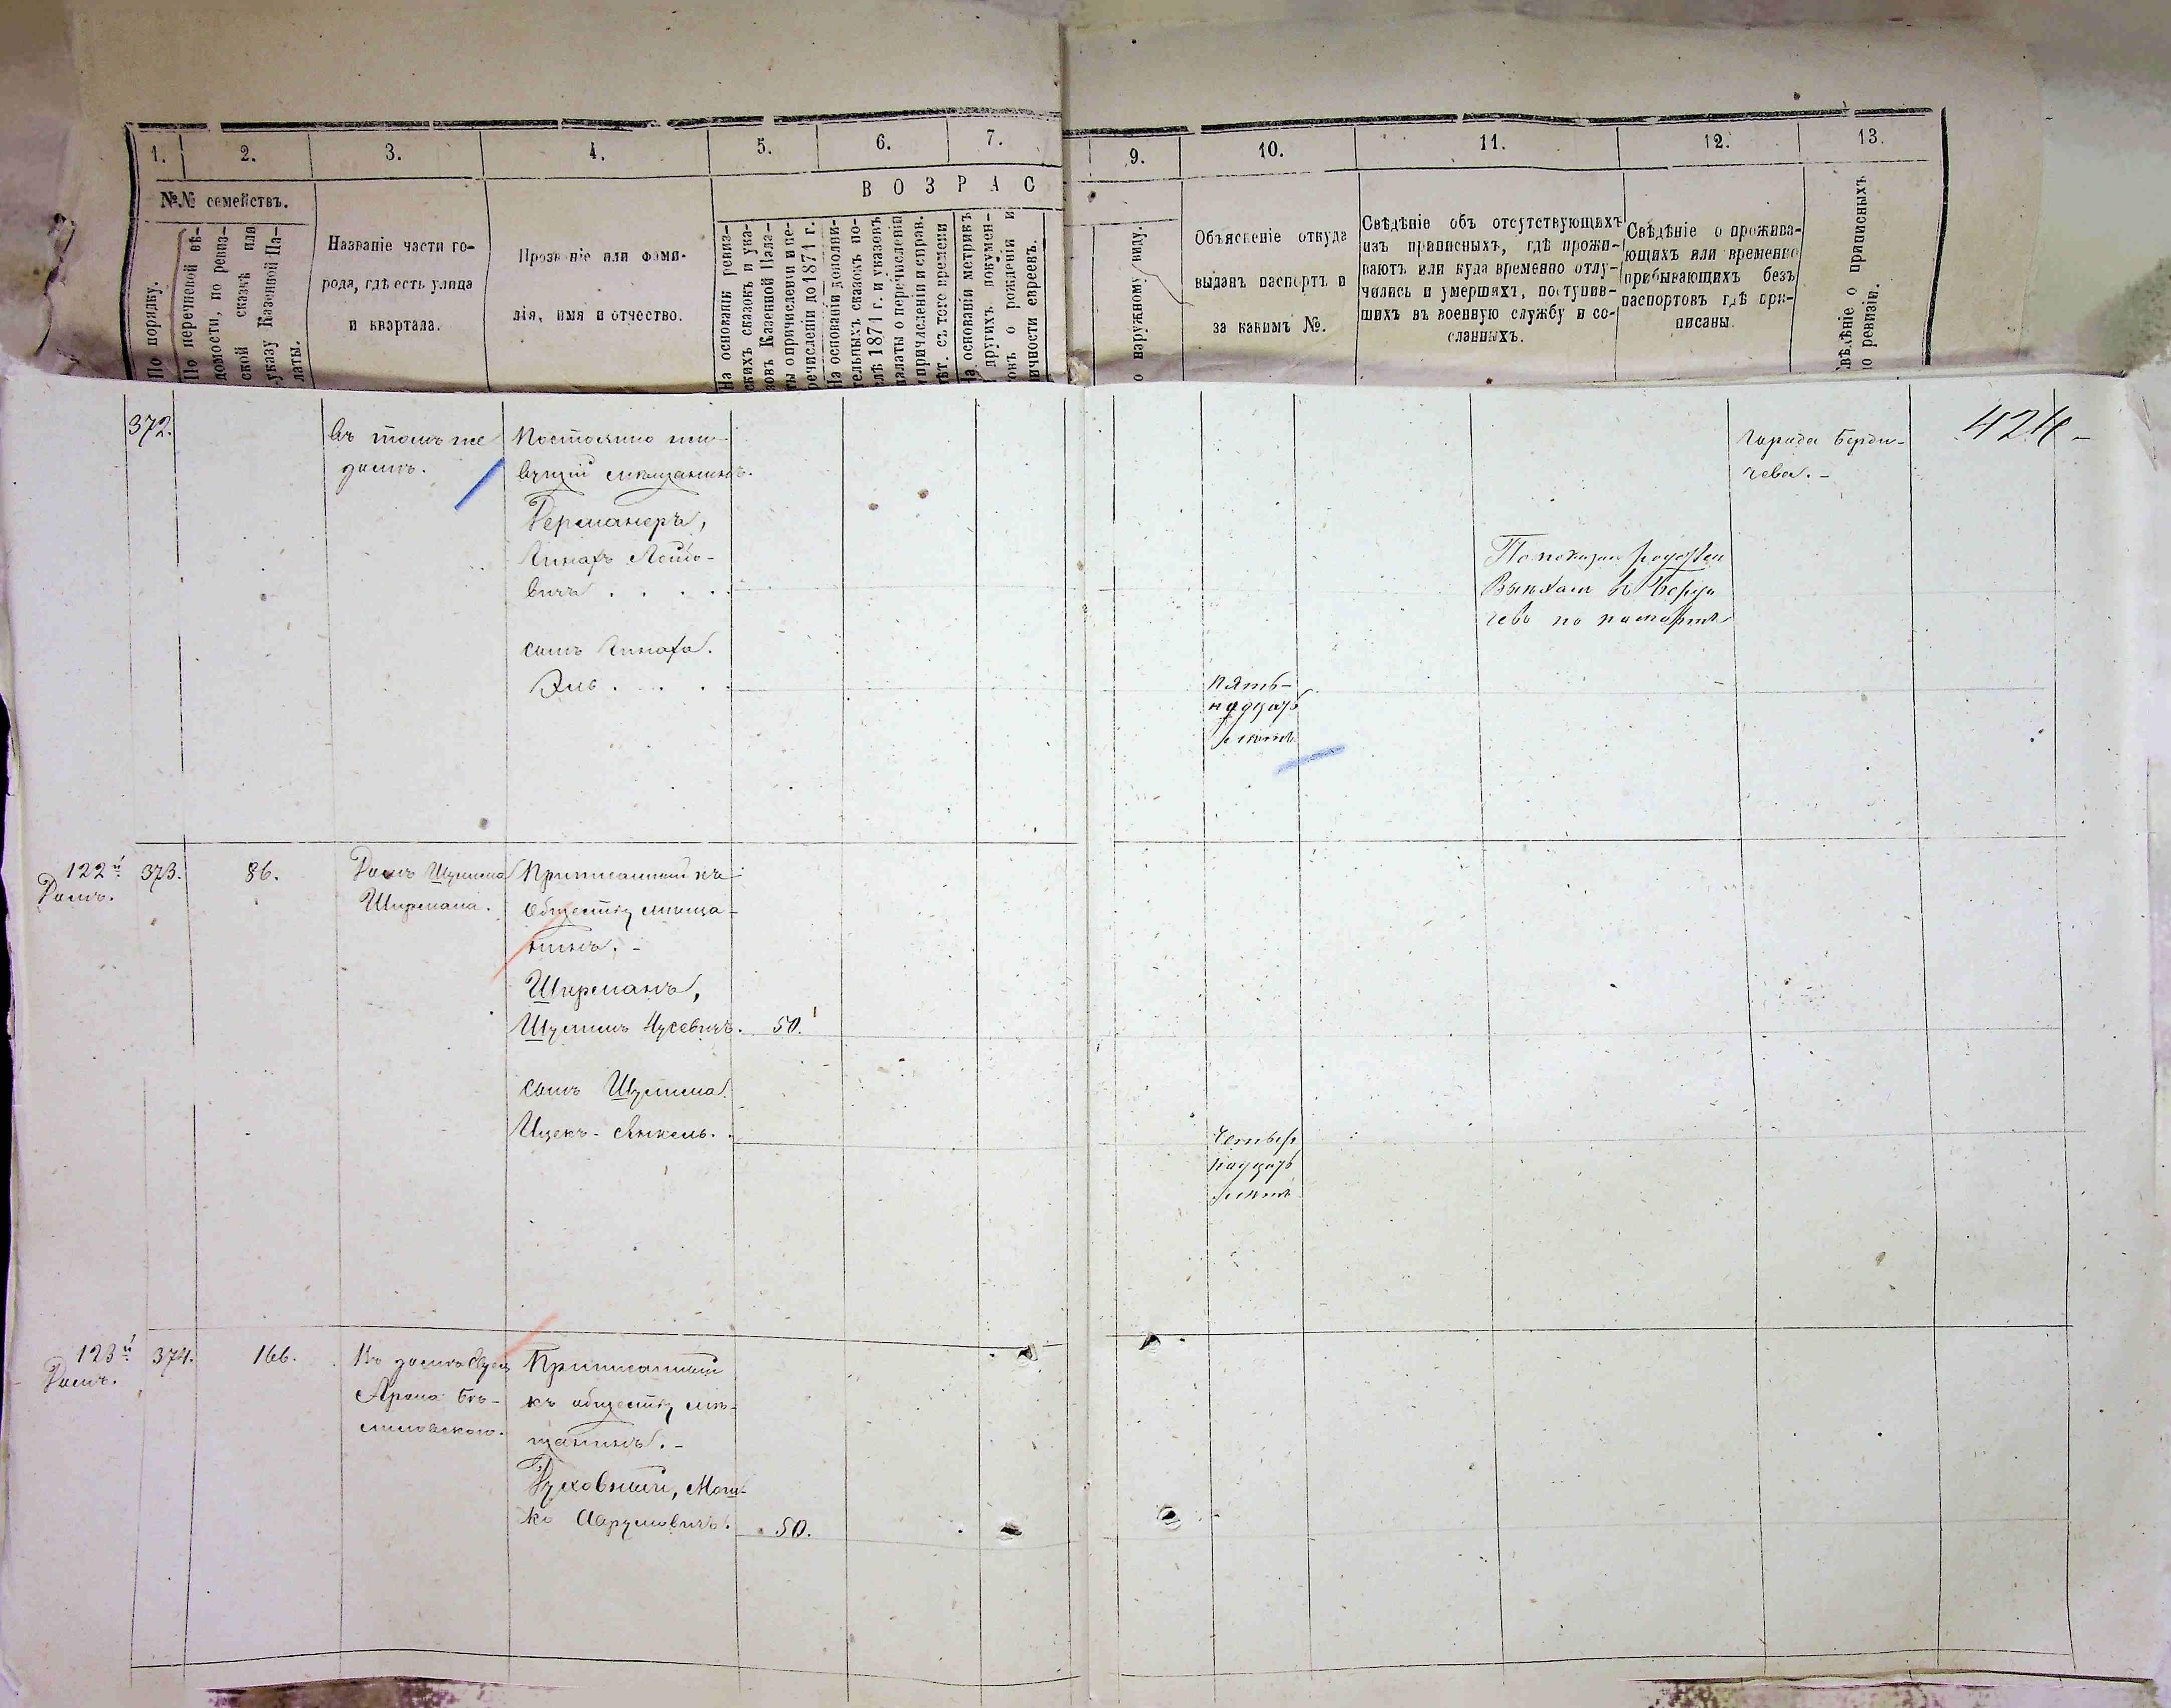 1.
2.
3.
4.
5.
6.
7.
9.
10.
11.
12.
13.
№№ семействъ.
ВОЗРАС
По порядку.
По перечневой вѣ-
домости, по ревиз-
ской сказкѣ или
указу Казенной Па-
латы.
Названіе части го-
рода, гдѣ есть улица
и квартала.
Прозваніе или фами-
лія, имя и отчество.
На основаніи ревиз-
скихъ сказокъ и ука-
зовъ Казенной Пала-
ты о причисленіи и пе-
речисленіи до 1871 г.
На основаніи дополни-
тельныхъ сказокъ по-
слѣ 1871 г. и указовъ
палаты о перечисленіи
и причисленіи и справ.
лѣт. съ того времени
На основаніи метрикъ
и другихъ докумен-
товъ о рожденіи и
личности евреевъ.
о наружному виду.
Объясненіе откуда
выданъ паспортъ и
за какимъ №.
Свѣдѣніе объ отсутствующихъ
изъ приписныхъ, гдѣ прожи-
ваютъ или куда временно отлу-
чились и умершихъ, поступив-
шихъ въ военную службу и со-
сланныхъ.
Свѣдѣніе о прожива-
ющихъ или временно
прибывающихъ безъ
паспортовъ гдѣ при-
писаны.
Свѣдѣніе о приписныхъ
по ревизіи.
372.
въ томъ же
домѣ.
Постоянно жи-
вущій мѣщанинъ.
Германеръ,
Лейбо-
вичъ . . . .
сынъ
Эль . . . .
Пять-
надцать
лѣтъ
Выѣхалъ въ Берди
чевъ по паспорту
города Берди-
чева. -
424
122й
Домъ.
373.
86.
Домъ Шулима
Ширмана.
Приписанный къ
обществу мѣща-
нинъ. -
Ширманъ,
Шулимъ Нусевичъ.
50.
сынъ Шулима
Ицекъ-Янкель. .
Четыр
надцать
лѣтъ
123й
Домъ.
374.
166.
Въ домѣ
Арона
Приписанный
къ обществу мѣ-
щанинъ. -
Духовный, Мош-
ко Аврумовичъ.
50.